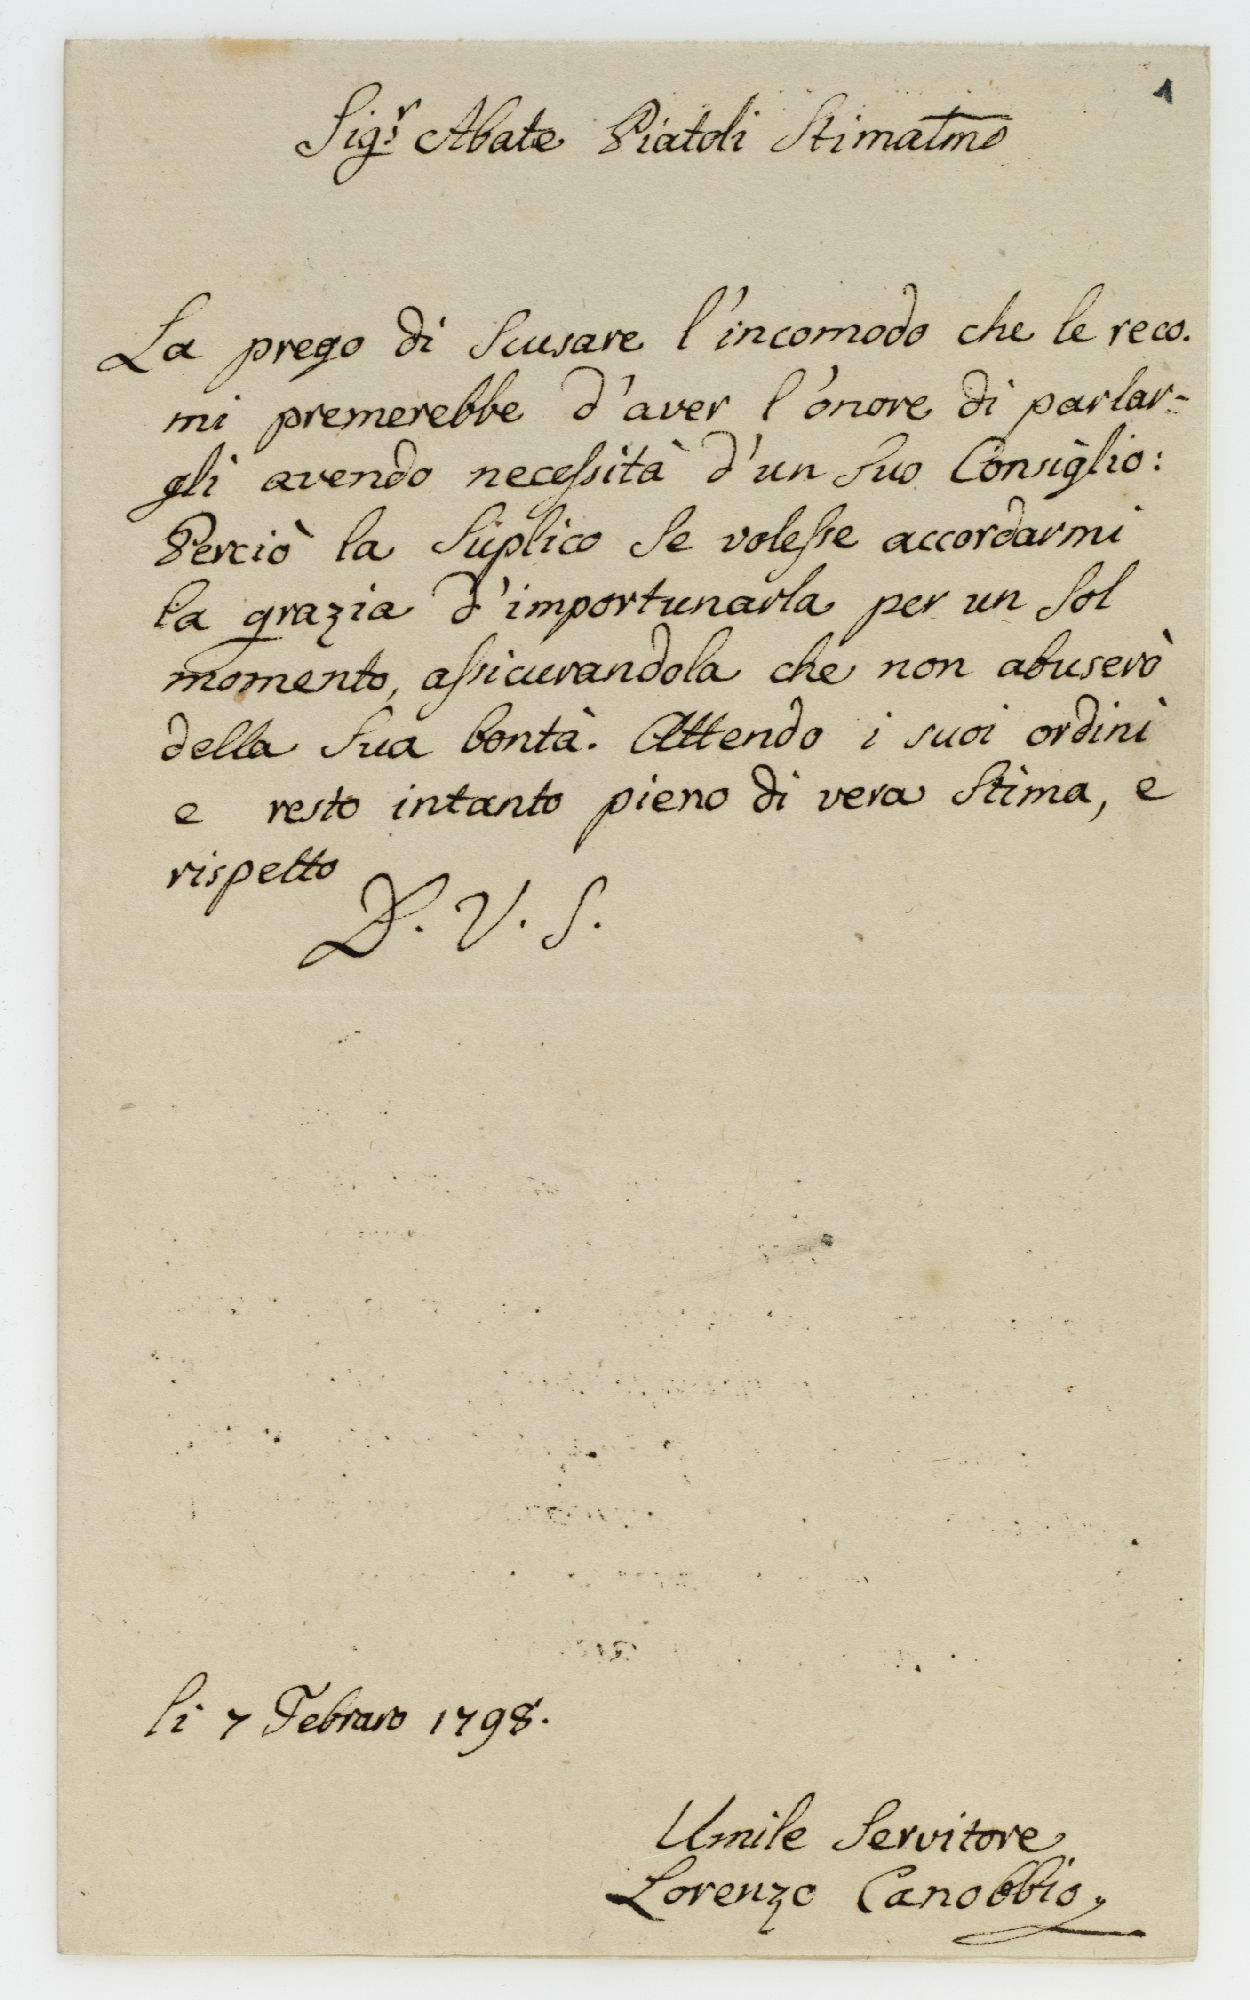 1
Sig.r Abate Piatoli Stimatmo
La prego di Scusare l'incomodo che le reco.
mi premerebbe d'aver l'onore di parlar=
gli avendo necessità d'un Suo Consiglio:
Perciò la Suplico Se volesse accordarmi
la grazia d'importunarla per un Sol
momento, assicurandola che non abuserò
della Sua bontà. Attendo i suoi ordini
e resto intanto pieno di vera Stima, e
rispetto
D. V. S.
li 7 Febraro 1798.
Umile Servitore
Lorenzo Canobbio